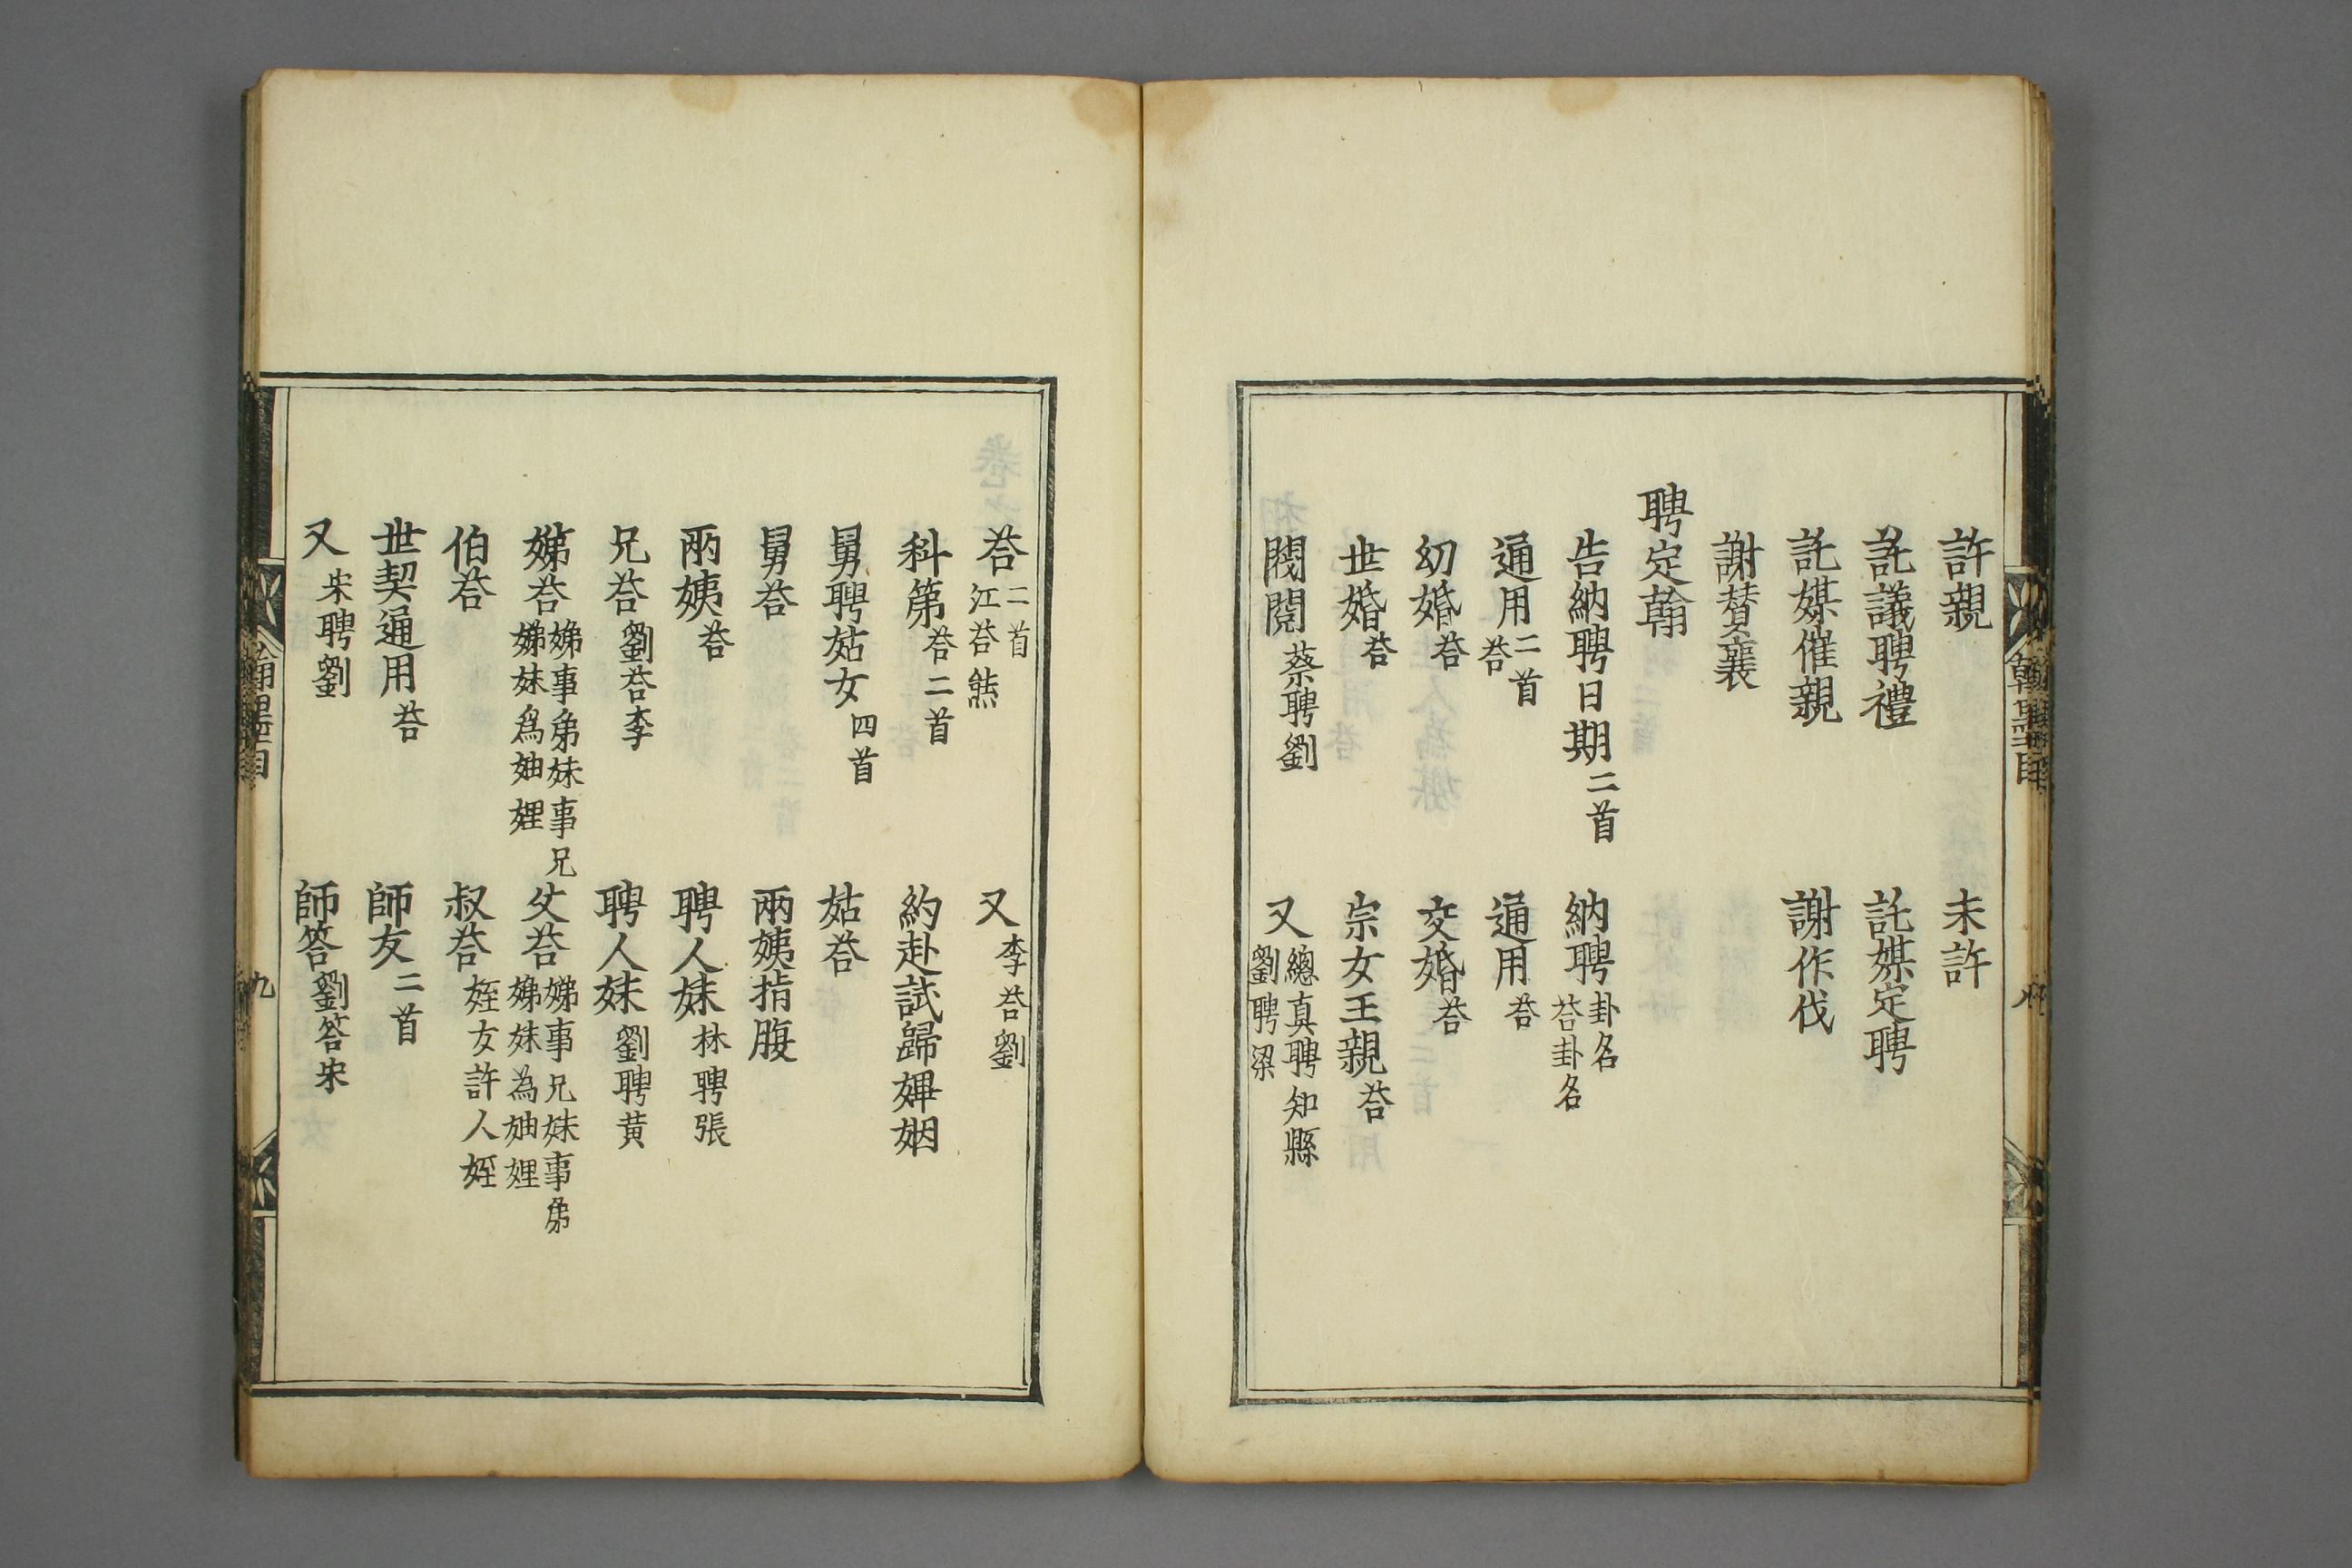 許親 未許
託議聘禮 託媒定聘
託媒催親 謝作伐
謝賛襄
聘定翰
告納聘日期 二首 納聘 卦名 荅卦名
通用 二首 荅 通用 荅
幼婚 荅 交婚 荅
世婚 荅 宗女王親 荅
閥閱 蔡聘劉 又 總真聘知縣 劉聘梁
荅 二首 江荅熊 又 李荅劉
科第 荅二首 約赴試歸婚姻
舅聘姑女 四首 姑荅
舅荅 兩姨指腹
兩姨 荅 聘人妹 林聘張
兄荅 劉荅李 聘人妹 劉聘黃
娣荅 娣事弟妹事兄 娣妹爲妯娌 丈荅 娣事兄妹事弟 娣妹為妯娌
伯荅 叔荅 姪女許人姪
世契通用 荅 師友 二首
又 宋聘劉 師答 劉答宋
九